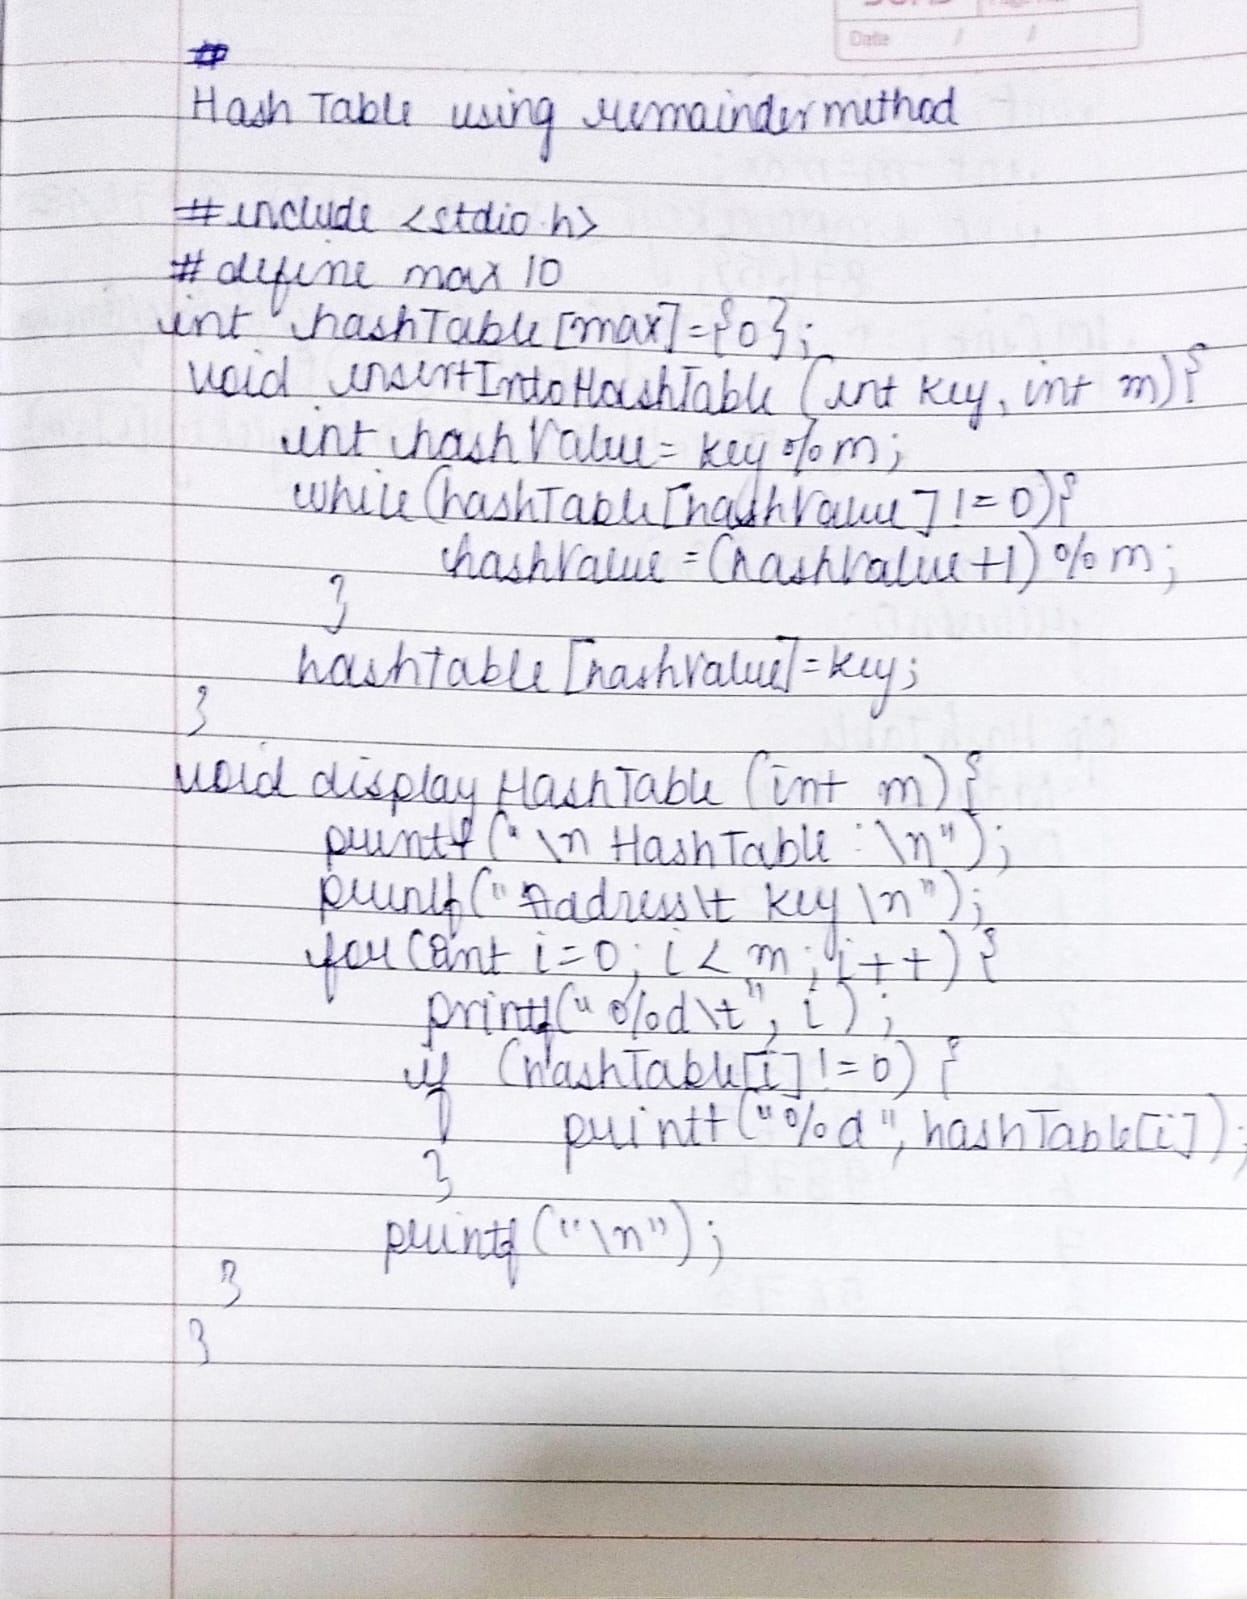 Date / /
#
Hash Table using remainder method
#include <stdio.h>
#define max 10
int hashTable[max]={0};
void insertIntoHashTable (int key, int m){
int hashValue = key % m;
while(hashTable[hashValue] != 0){
hashValue = (hashValue+1) % m;
}
hashtable[hashValue]=key;
}
void display HashTable (int m) {
printf("\n HashTable : \n");
printf("Address\t key \n");
for(int i=0; i < m; i++) {
printf("%d\t", i);
if (hashTable[i] != 0) {
printf("%d", hashTable[i]);
}
printf("\n");
}
}